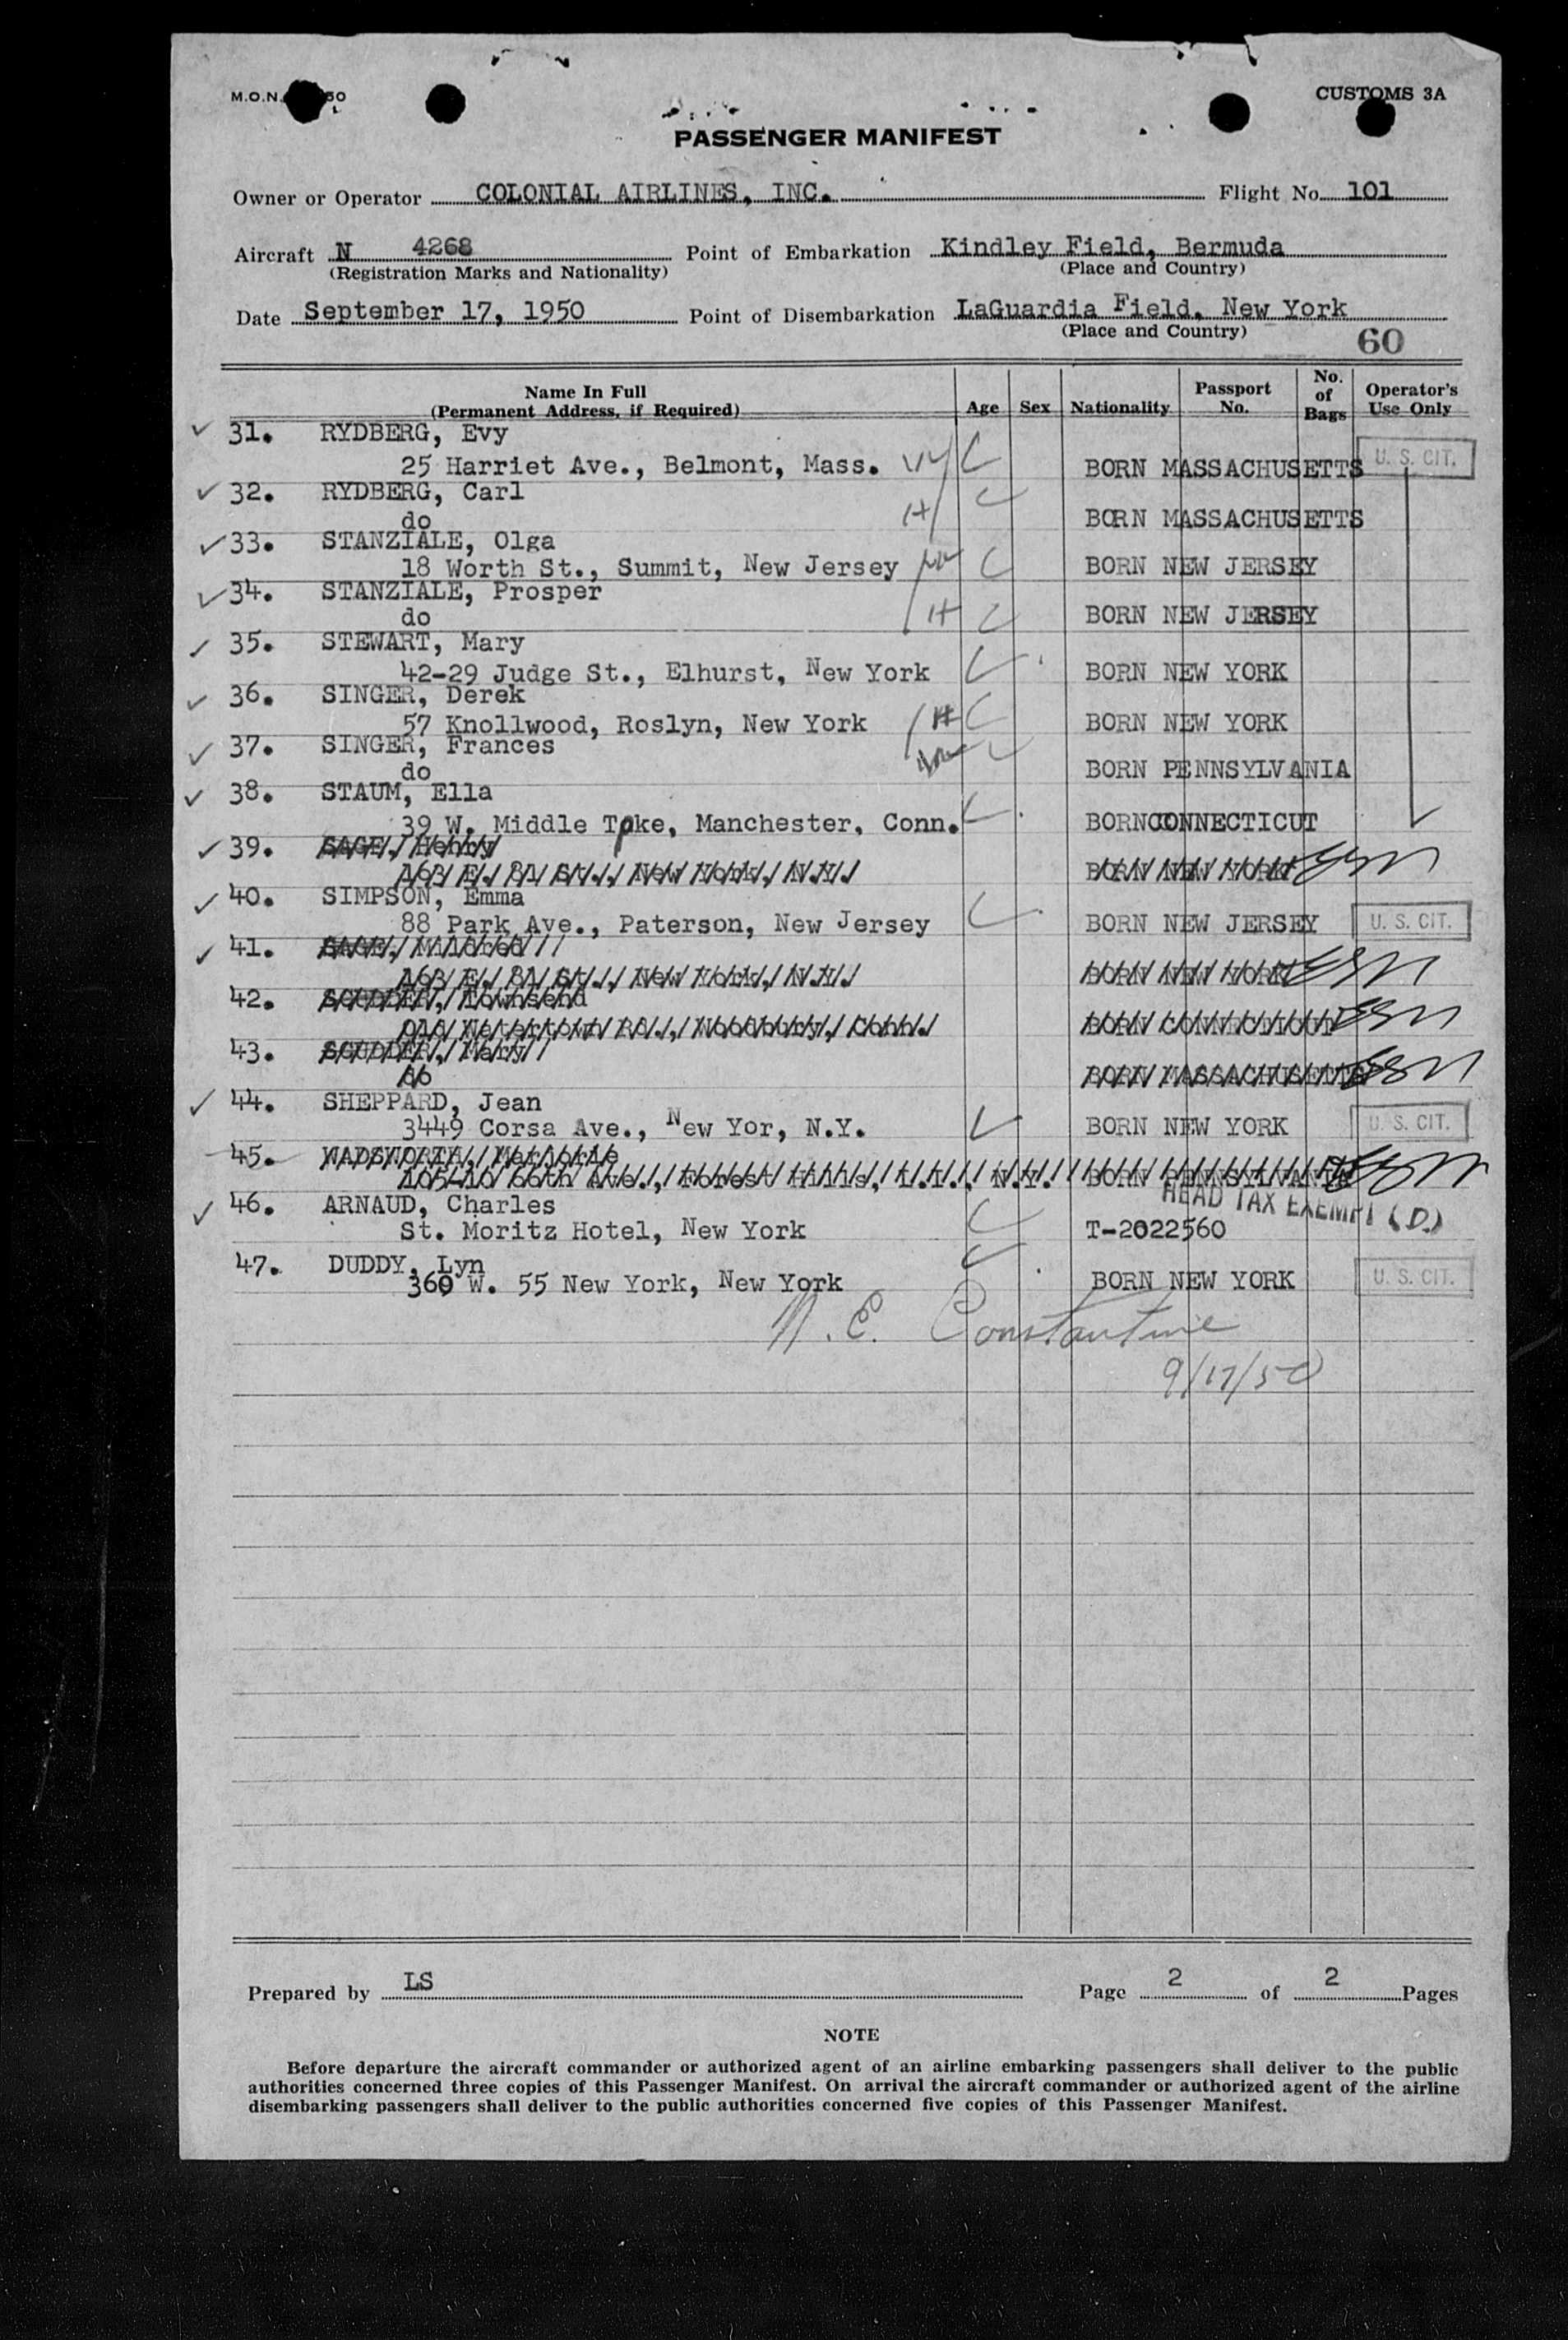 M.O.N. 50
CUSTOMS 3A
PASSENGER MANIFEST
Owner or Operator COLONIAL AIRLINES, INC. Flight No. 101
Aircraft N 4268 Point of Embarkation Kindley Field, Bermuda
(Registration Marks and Nationality) (Place and Country)
Date September 17, 1950 Point of Disembarkation LaGuardia Field, New York
(Place and Country)
60
Name In Full (Permanent Address, if Required) Age Sex Nationality Passport No. No. of Bags Operator's Use Only
31. RYDBERG, Evy
25 Harriet Ave., Belmont, Mass. BORN MASSACHUSETTS U. S. CIT.
32. RYDBERG, Carl
do H BORN MASSACHUSETTS
33. STANZIALE, Olga
18 Worth St., Summit, New Jersey BORN NEW JERSEY
34. STANZIALE, Prosper
do H BORN NEW JERSEY
35. STEWART, Mary
42-29 Judge St., Elhurst, New York BORN NEW YORK
36. SINGER, Derek
57 Knollwood, Roslyn, New York H BORN NEW YORK
37. SINGER, Frances
do BORN PENNSYLVANIA
38. STAUM, Ella
39 W. Middle Tpke, Manchester, Conn. BORN CONNECTICUT
39. SAGE, Henry
New York, N.Y. BORN NEW YORK
40. SIMPSON, Emma
88 Park Ave., Paterson, New Jersey BORN NEW JERSEY U. S. CIT.
41. SAGE, Mildred
New York, N.Y. BORN NEW YORK
42. SCUDDER, Townsend
Watertown Rd., Woodbury, Conn. BORN CONNECTICUT
43. SCUDDER, Mary
do BORN MASSACHUSETTS
44. SHEPPARD, Jean
3449 Corsa Ave., New Yor, N.Y. BORN NEW YORK U. S. CIT.
45. WADSWORTH, Marjorie
105-10 66th Ave., Forest Hills, L.I., N.Y. BORN PENNSYLVANIA
46. ARNAUD, Charles HEAD TAX EXEMPT (D.)
St. Moritz Hotel, New York T-2022560
47. DUDDY, Lyn
360 W. 55 New York, New York BORN NEW YORK U. S. CIT.
N. E. Constantine
9/17/50
Prepared by LS Page 2 of 2 Pages
NOTE
Before departure the aircraft commander or authorized agent of an airline embarking passengers shall deliver to the public
authorities concerned three copies of this Passenger Manifest. On arrival the aircraft commander or authorized agent of the airline
disembarking passengers shall deliver to the public authorities concerned five copies of this Passenger Manifest.